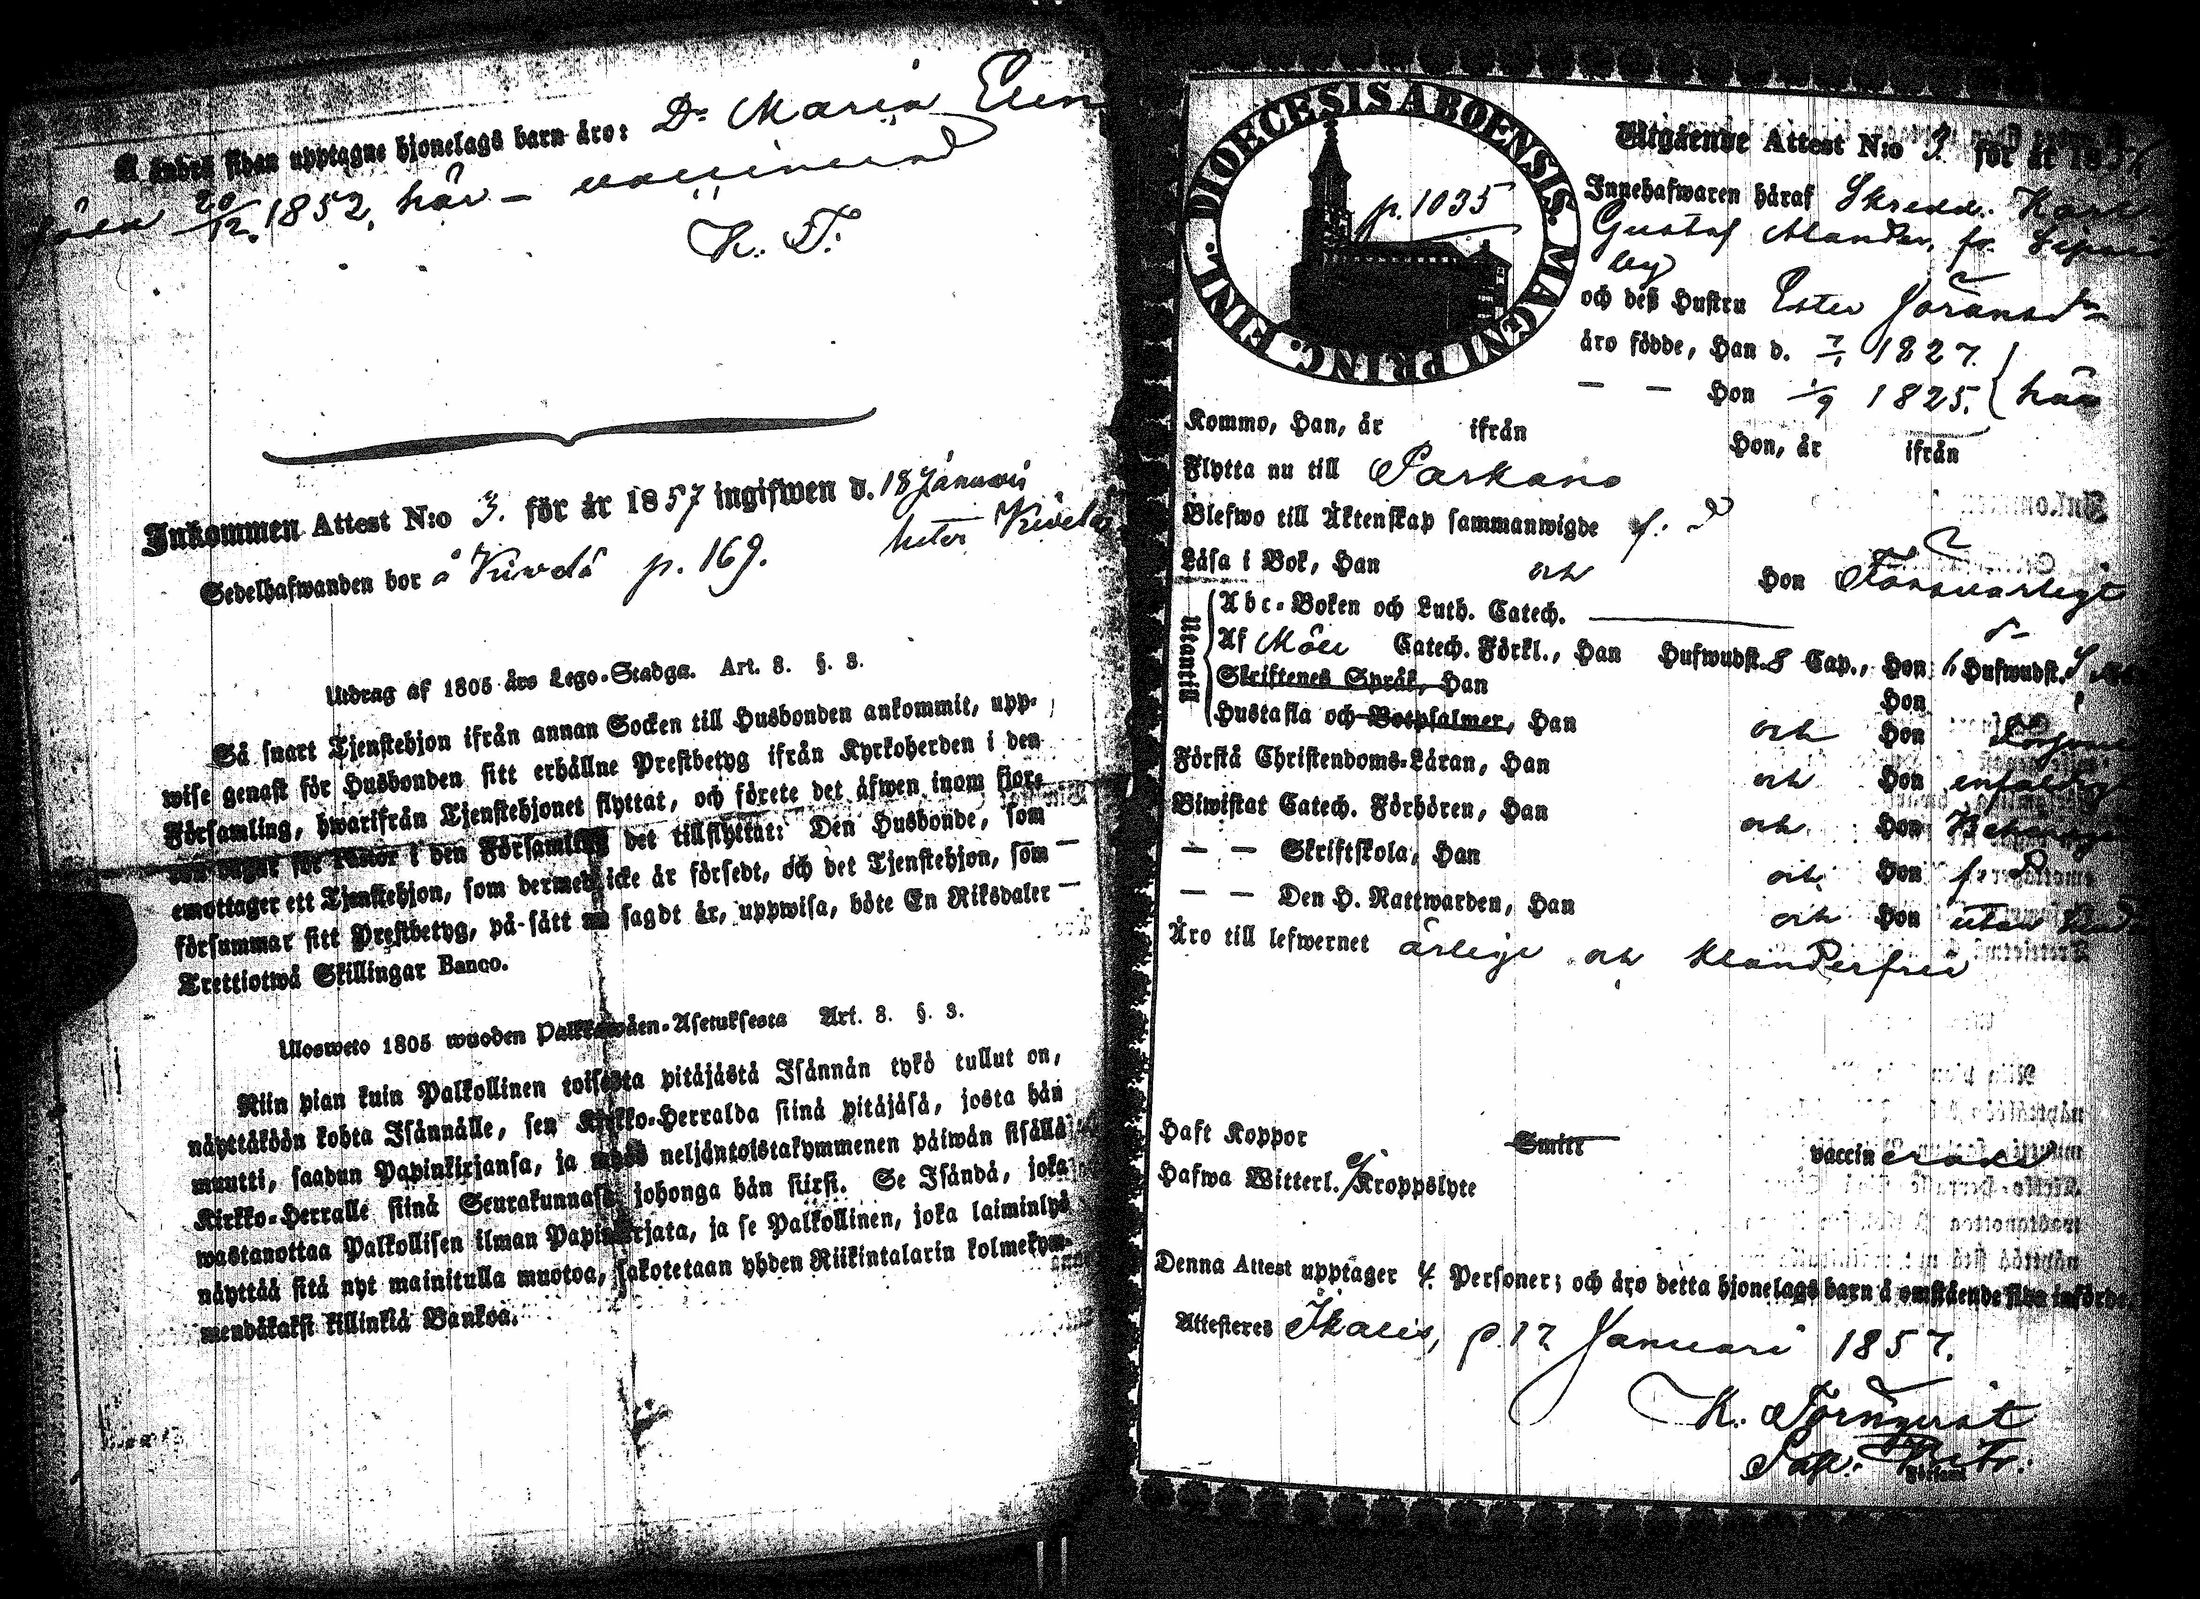 Å andra sidan upptagne hjonelags barn äro: Dr Maria Elen
född 20/12. 1852, här - vaccinerad
K. T.
Inkommen Attest N:o 3. för år 1857 ingifwen d. 18 Januari
Sedelhafwanden bor å p. 169. heter
Utdrag af 1805 års Lego-Stadga. Art. 3. §. 3.
Så snart Tjenstehjon ifrån annan Socken till Husbonden ankommit, upp-
wise genast för Husbonden sitt erhållne Prestbetyg ifrån Kyrkoherden i den
Församling, hwarifrån Tjenstehjonet flyttat, och förete det äfwen inom fjor-
ton dagar för Pastor i den Församling det tillflyttat: Den Husbonde, som
emottager ett Tjenstehjon, som dermed icke är försedt, och det Tjenstehjon, som
försummar sitt Prestbetyg, på sätt nu sagdt är, uppwisa, böte En Riksdaler
Trettiotwå Skillingar Banco.
Ulosweto 1805 wuoden Palkkawäen-Asetuksesta Art. 3. §. 3.
Niin pian kuin Palkollinen toisesta pitäjästä Isännän tykö tullut on,
näyttäköön kohta Isännälle, sen Kirkko-Herralda siinä pitäjäsä, josta hän
muutti, saadun Papinkirjansa, ja myös neljäntoistakymmenen päiwän sisällä
Kirkko-Herralle siinä Seurakunnasa, johonga hän siirsi. Se Isändä, joka
wastanottaa Palkollisen ilman Papinkirjata, ja se Palkollinen, joka laiminlyö
näyttää sitä nyt mainitulla muotoa, sakotetaan yhden Riikintalarin kolmekym-
mendäkaksi killinkiä Bankoa.
DIOECESIS ABOENSIS. MAGNI PRINC. FINL.
p. 1035
Utgående Attest N:o 3. för år 1857
Innehafwaren häraf Skredd. Karl
Gustaf Alander, fr.
by
och deß Hustru Ester Göransdr
äro födde, Han d. 7/1 1827.
— — Hon 1/9 1825. } här
Kommo, Han, år ifrån Hon, år ifrån
Flytta nu till Parkano
Blefwo till Äktenskap sammanwigde
Läsa i Bok, Han och Hon Försvarligt
Utantill
Abc-Boken och Luth. Catech.
Af Möll. Catech. Förkl., Han Hufwudst. 8 Cap., Hon 6 Hufwudst.
Skriftenes Språk, Han Hon
Hustafla och Botpsalmer, Han och Hon
Förstå Christendoms-Läran, Han och Hon enfaldigt
Biwistat Catech. Förhören, Han och Hon
— — Skriftskola, Han och Hon
— — Den H. Nattwarden, Han och Hon utan
Äro till lefwernet ärlige och klanderfrie
Haft Koppor Smitt vaccinerade
Hafwa Witterl. ej Kroppslyte
Denna Attest upptager 4. Personer; och äro detta hjonelags barn å omstående sida införde.
Attesteres Ikalis, p. 17 Januari 1857.
K. Törnqvist